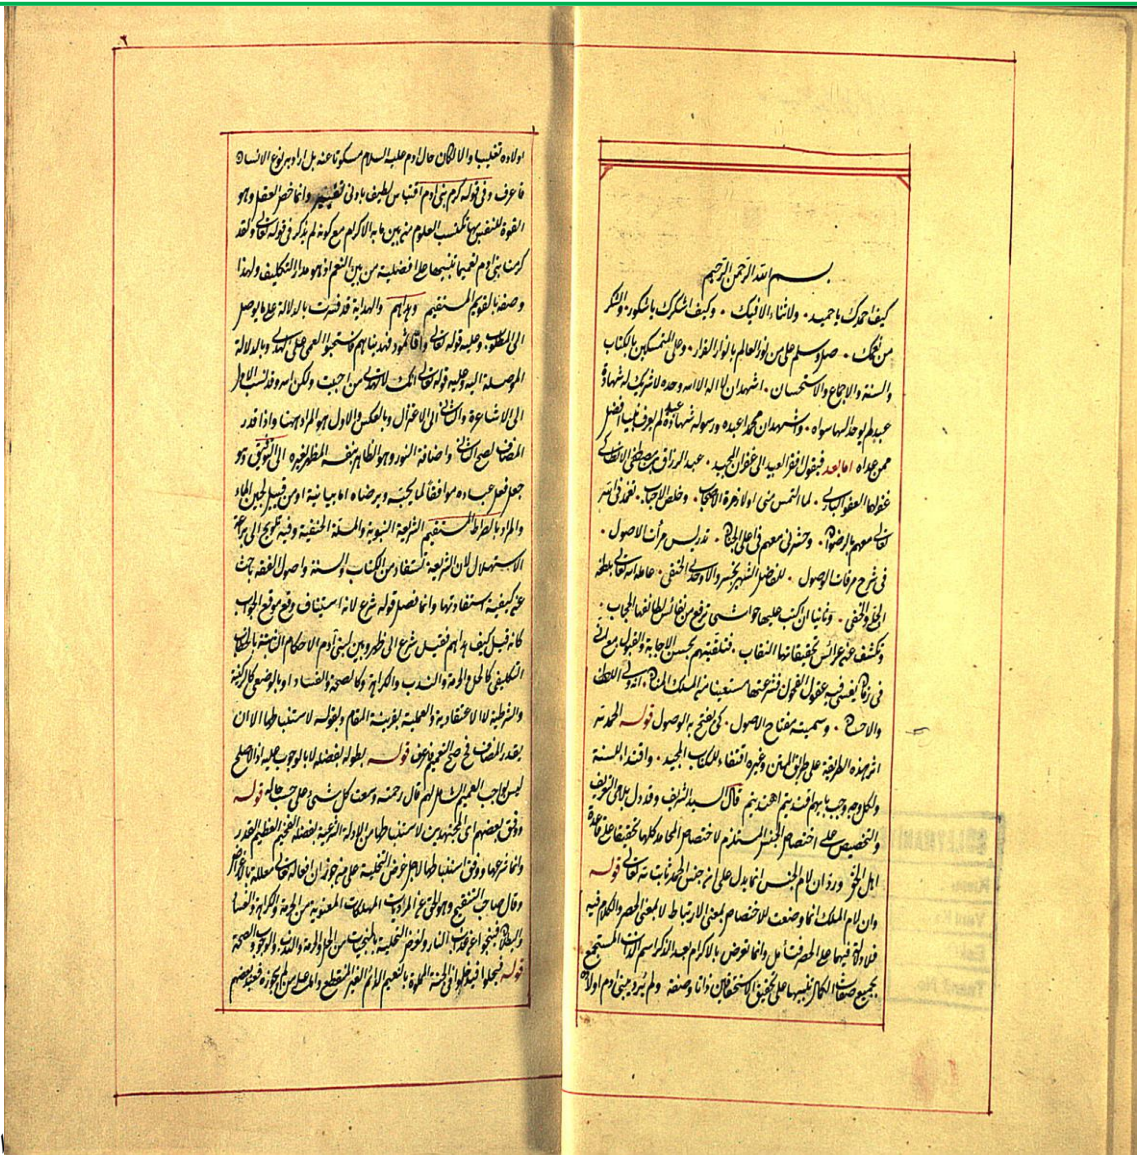 بسم الله الرحمن الرحيم
كيف احمدك يا حميد ولا ثناء الا فيك وكيف اشكرك يا شكور والشكر
من نعمك صل وسلم على من نور العالم بانوار القرار وعلى المتمسكين بالكتاب
والسنة والاجماع والاستحسان اشهد ان لا اله الا الله وحده لا شريك له شهادة
عبد لم يوحد الها سواه واشهد ان محمدا عبده ورسوله شهادة عبد لم يعرف نبيا افضل
ممن عداه اما بعد فيقول افقر العبيد الى غفران المجيد عبد الرزاق بن مصطفى الانطاكي
غفر لهما العفو الباري لما التمس منى اولا زمرة الاصحاب وخلص الاحباب
تعالى معهم وحشرنى معهم فى اعلى تدريس مرآت الاصول
فى شرح مرقات الوصول للفضل الشهير بخسرو الاوحدى الحنفى عامله الله تعالى بلطفه
الجلى والخفى وثانيا ان اكتب عليها حواشى ترفع من نفائس لطائفها الحجاب
وتكشف عن عرائس تحقيقاتها النقاب فتلقيتهم بحسن الاجابة والقبول مع انى
فى زمان فيه عقول الفحول فشرعتها مستعينا من الملك المنان انه ولى اللطف
والاحسان وسميته مفتاح الاصول كى يفتح به الوصول قوله الحمد لله
اثر هذه الطريقة على طريق المتن وغيره اقتفاء للكتاب المجيد واقتداء للسنة
والكل وجه وجب بايهم اقتديتم اهتديتم قال السيد الشريف وقد دل بلامى التعريف
والتخصيص على اختصاص الجنس المستلزم لاختصاص المحامد كلها تحقيقا على قاعدة
اهل الحق ورد ان لام الجنس انما يدل على ان جنس الحمد ثابت لله تعالى قوله
وان لام الملك انما وضعت للاختصاص بمعنى الارتباط لا بمعنى الحصر والكلام فيه
فلا دلالة فيها على الحصر فتأمل وانما تعرض بالاكرام بعد الذكر اسم الذات المستجمع
بجميع صفات الكمال تنبيها على تحقيق الاستحقاقين ذاتا وصفة ولم يرد ببنى ادم اولاده
اولاده تغليبا والا لكان حال ادم عليه السلام مسكوتا عنه بل اراد به نوع الانسان
فاعرف وفى قوله كرم بنى ادم اقتباس لطيف بادنى تغيير وانما خص العقل وهو
القوة للنفس بها تكتسب العلوم من بين ما به الاكرام مع كونه لم يذكر فى قوله تعالى ولقد
كرمنا بنى ادم تعميما تنبيها على افضلية من بين النعم اذ هو مدار التكليف ولهذا
وصفه بالقويم المستقيم وهداهم والهداية قد فسرت بالدلالة على ما يوصل
الى المطلوب وعليه قوله تعالى واما ثمود فهديناهم فاستحبوا العمى على الهدى وبالدلالة
الموصلة اليه وعليه قوله تعالى انك لا تهدى من احببت ولكن الله وقد نسب الاول
الى الاشاعرة والثانى الى الاعتزال وبالعكس والاول هو المراد ههنا واذا قدر
المضاف لصح الثانى واضافة النور وهو الظاهر بنفسه المظهر لغيره الى التوفيق وهو
جعل فعل عباده موافقا لما يحبه ويرضاه اما بيانية او من قبيل لجين الماء
والمراد بالصراط المستقيم الشريعة النبوية والملة الحنفية وفيه تلويح الى براعة
الاستهلال لان الشريعة تستفاد من الكتاب والسنة واصول الفقه باحث
عن كيفية استفادتها وانما فصل قوله شرع لانه استيناف وقع موقع الجواب
كانه قيل كيف هداهم فقيل شرع اى ظهر وبين لبنى آدم الاحكام الثابتة بالخطاب
التكليفى كالحل والحرمة والندب والكراهة وكالصحة والفساد او بالوضعى كالركنية
والشرطية لا الاعتقادية والعملية بقرينة المقام وبقوله لاستنباطها الا ان
يقدر المضاف فح صح التعميم قوله بطوله لفضله لا بالوجوب عليه اذ الاصلح
ليس بواجب العميم الشامل لهم قال رحمته وسعت كل شىء على حسب حاله قوله
ووفق بعضهم اى المجتهدين لاستنباطها من الادلة الشرعية بفضله الفخيم العظيم القدر
وانما شرعها ووفق استنباطها لاجل غرض التخلية على من جوز ان افعاله تعالى معللة بالاغراض
وقال صاحب التنقيح وهو الحق عن المهلكات المعنوية من الحرمة والكراهة والفساد
والبطلان فينجوا عن عذاب النار ولغرض التحلية بالمنجيات من الحل والحرمة والندب والوجوب والصحة
قوله فيدخلوا فى الجنة المملوة بالنعيم الدائم الغير المنقطع